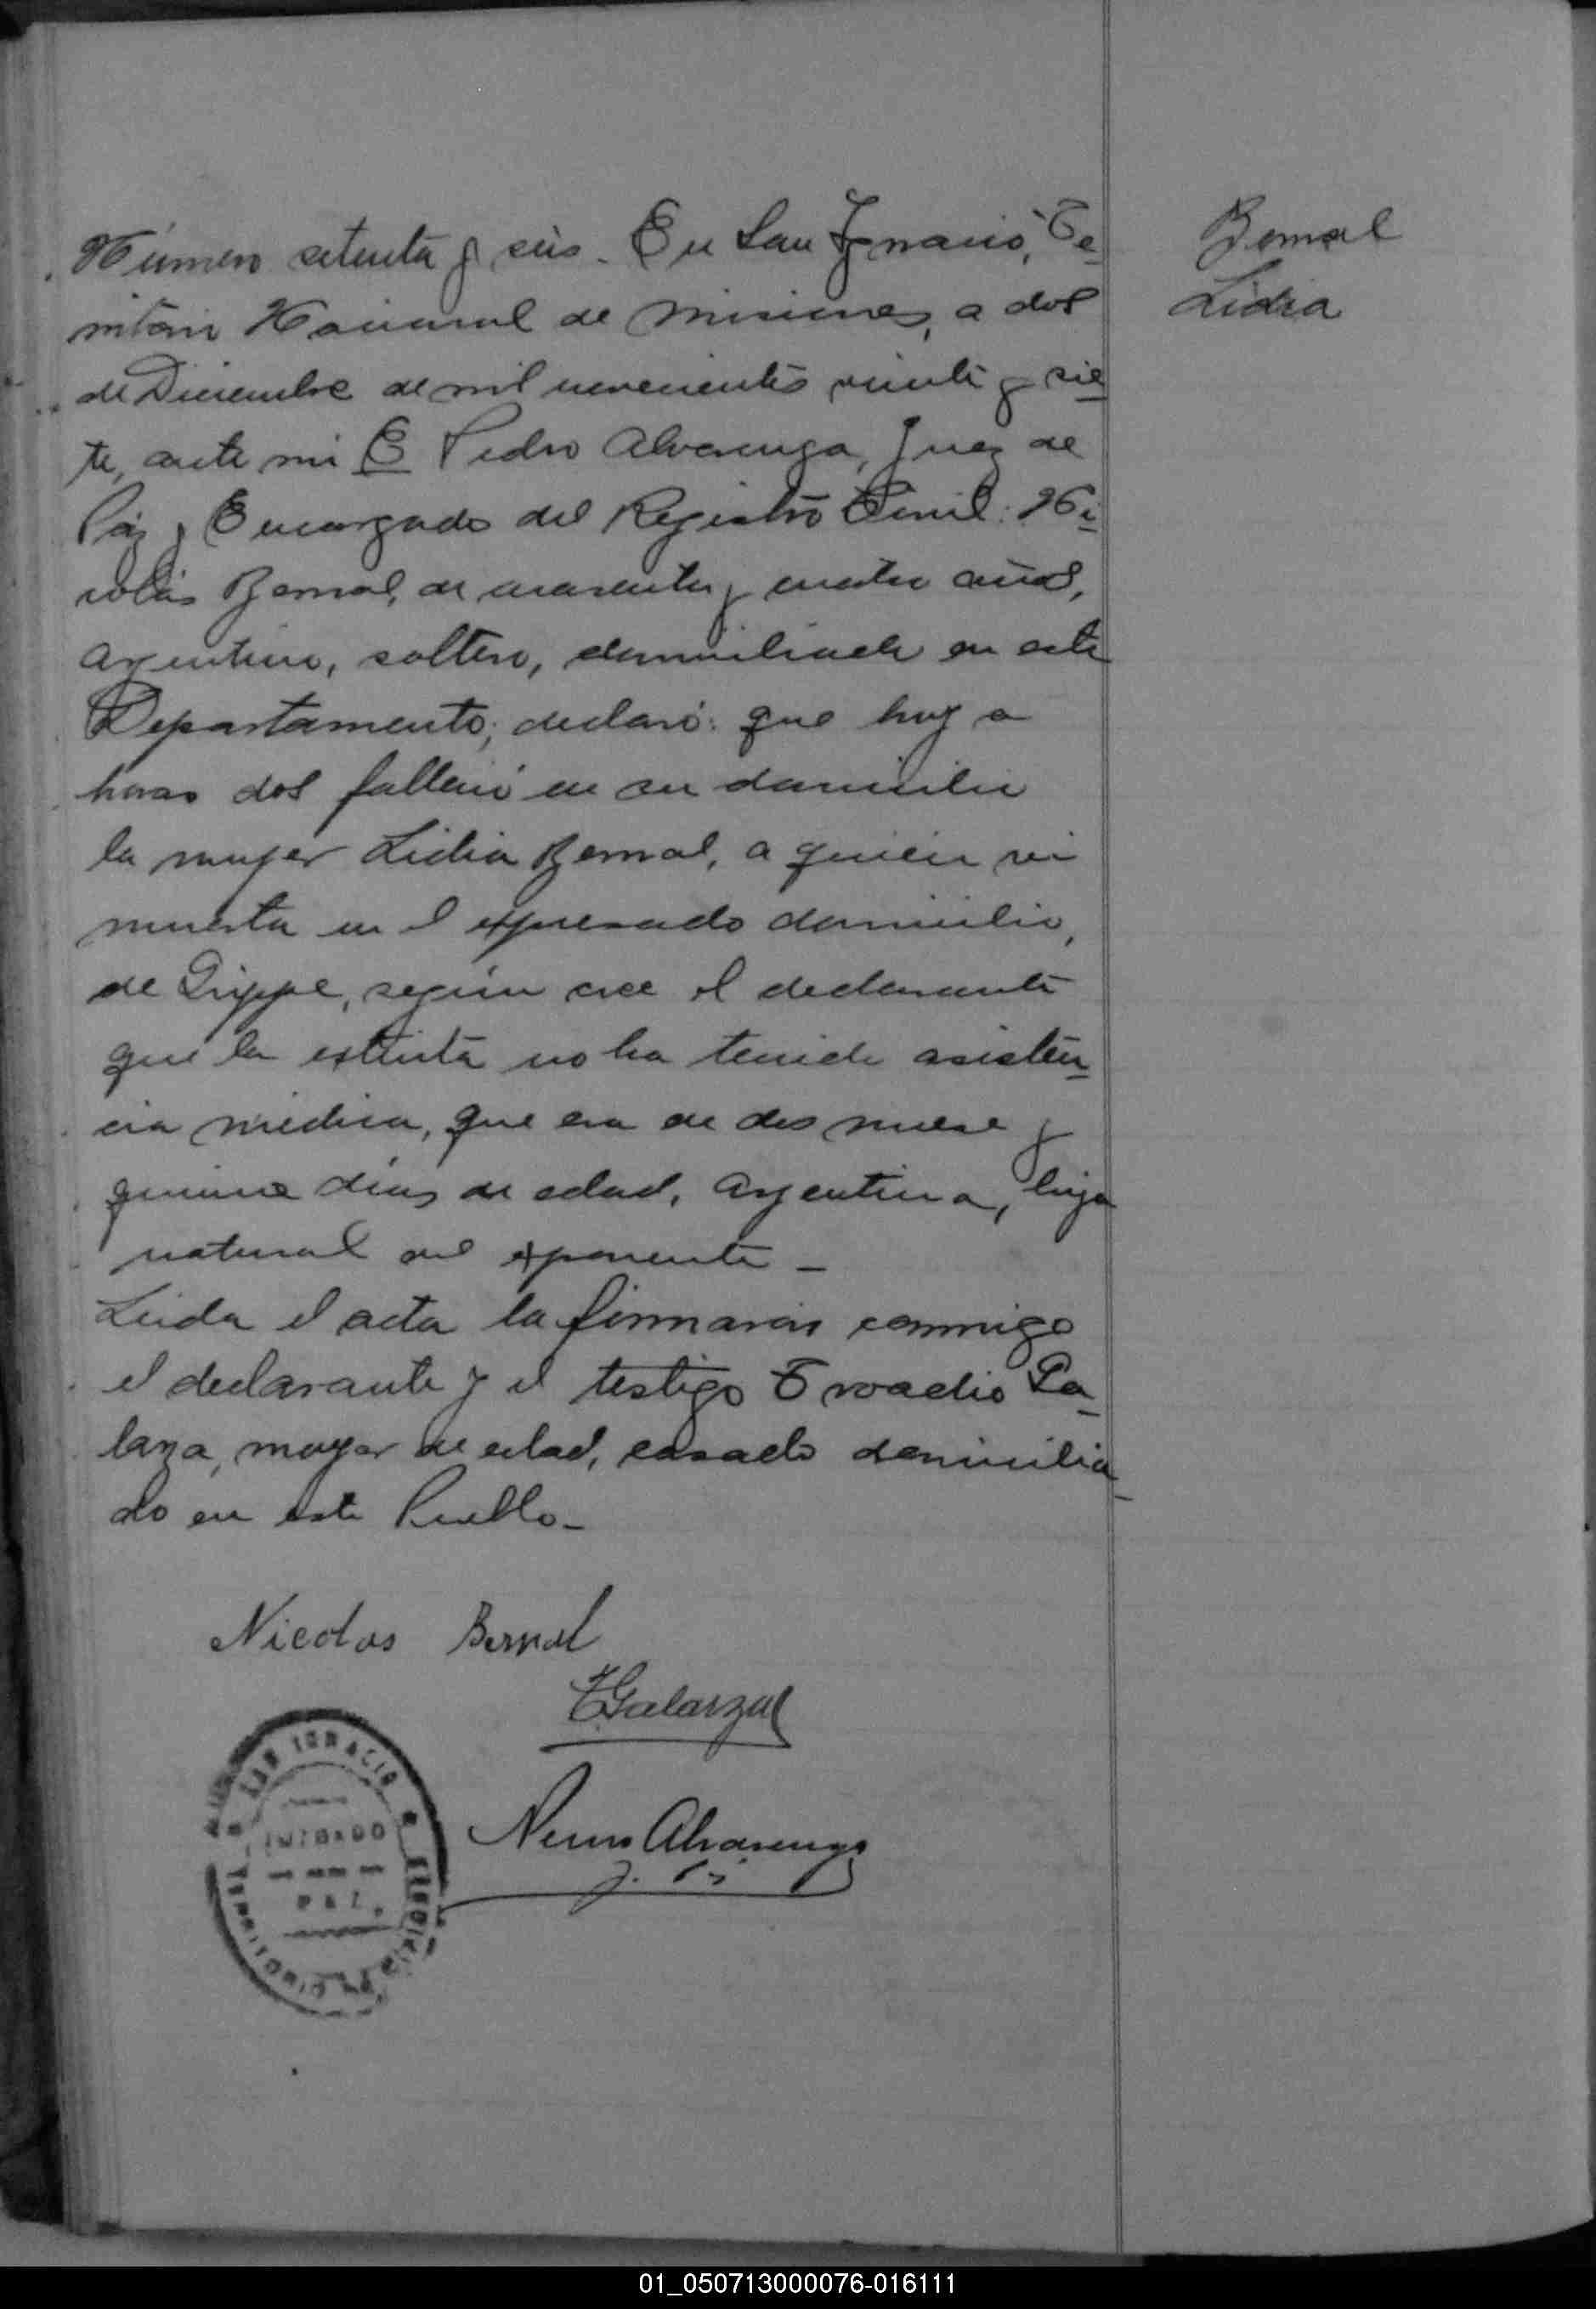 Número setenta y seis. En San Ignacio, Te-
rritorio Nacional de Misiones, a dos
de Diciembre de mil novecientos veinte y sie-
te, ante mi E Pedro Alvarenga, Juez de
Páz y Encargado del Registro Civil: Ni-
colás Bernal, de cuarenta y cuatro años,
argentino, soltero, domiciliado en este
Departamento; declaró: que hoy a
horas dos falleció en su domicilio
la mujer Lidia Bernal, a quién vi
muerta en el expresado domicilio,
de Grippe, según cree el declarante
que la extinta no ha tenido asisten-
cia médica, que era de dos mese y
quince días de edad, argentina, hija
natural del exponente -
Leida el acta la firmaron conmigo
el declarante y el testigo Evoadio Ga-
larza, mayor de edad, casado domicilia-
do en este Pueblo -
Bernal
Lidia
Nicolas Bernal
EGalarza
Alvarenga
SAN IGNACIO
JUZGADO
PAZ
TERRITORIO
01_050713000076-016111